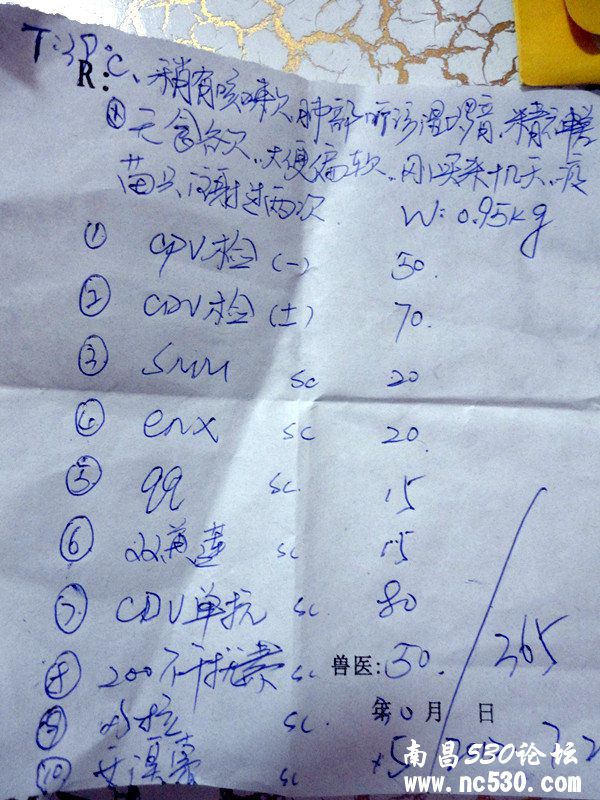 T:39℃, 稍有咳嗽, 肺部听诊湿啰音, 精神
R:
无食欲, 大便偏软, 刚买来十几天, 疫
苗只注射过两次 W: 0.95kg
① CPV检(-) 50.
② CDV检(±) 70.
③ SMM sc 20
④ enx sc 20
⑤ qq sc. 15
⑥ 双黄连 sc 15
⑦ CDV单抗 sc. 80
⑧ 200万干扰素 sc 兽医: 50.
365
⑨ sc. 年 月 日
⑩ sc +5
南昌530论坛
www.nc530.com